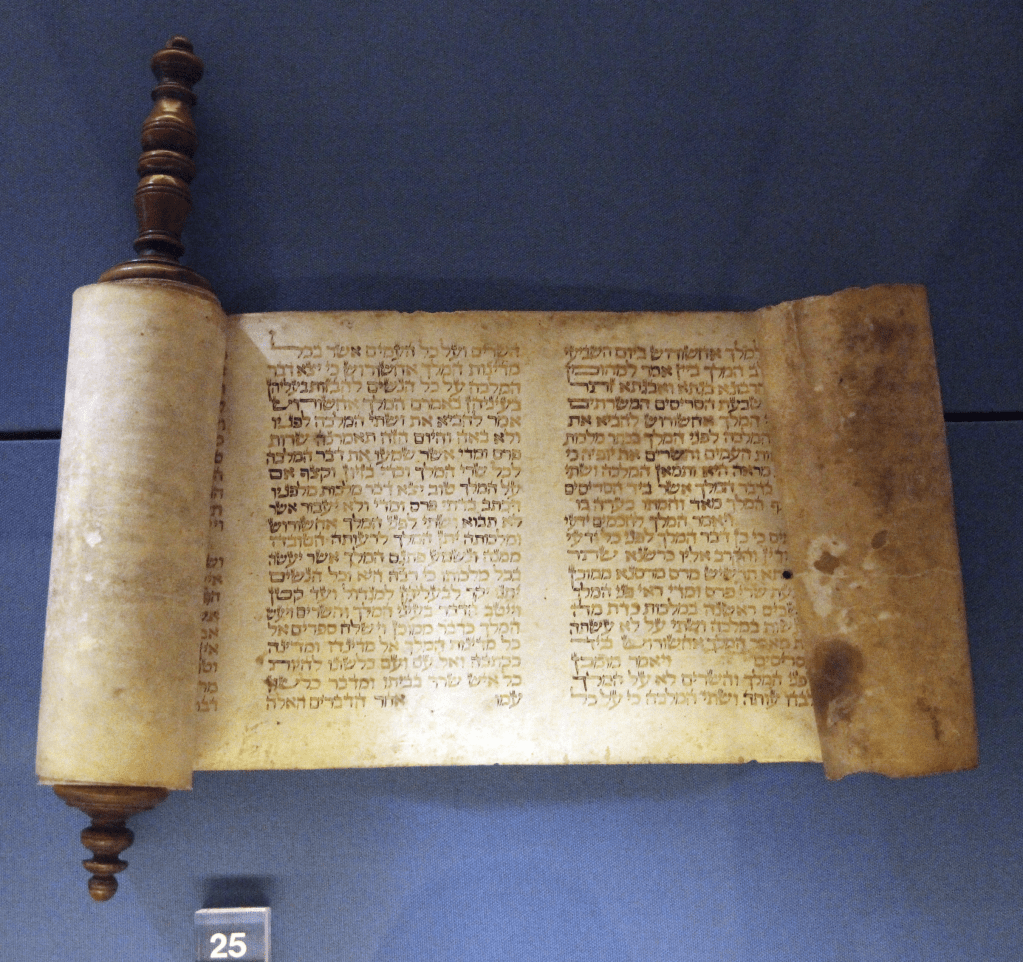 למלך אחשורוש ביום השביעי
המלך ביין אמר למהומן
בגתא ואבגתא זתר
שבעת הסריסים המשרתים
המלך אחשורוש להביא את
המלכה לפני המלך בכתר מלכות
העמים והשרים את יפיה כי
מראה היא ותמאן המלכה ושתי
בדבר המלך אשר ביד הסריסים
המלך מאד וחמתו בערה בו
ויאמר המלך לחכמים ידעי
כי כן דבר המלך לפני כל ידעי
ודין והקרב אליו כרשנא שתר
תרשיש מרס מרסנא ממוכן
שרי פרס ומדי ראי פני המלך
ראשנה במלכות כדת מה
במלכה ושתי על לא עשתה
מאמר המלך אחשורוש ביד
הסריסים ויאמר מומכן
פני המלך והשרים לא על המלך
עותה ושתי המלכה כי על כל
השרים ועל כל העמים אשר בכל
מדינות המלך אחשורוש כי יצא דבר
המלכה על כל הנשים להבזות בעליהן
בעיניהן באמרם המלך אחשורוש
אמר להביא את ושתי המלכה לפניו
ולא באה והיום הזה תאמרנה שרות
פרס ומדי אשר שמעו את דבר המלכה
לכל שרי המלך וכדי בזיון וקצף אם
על המלך טוב יצא דבר מלכות מלפניו
ויכתב בדתי פרס ומדי ולא יעבור אשר
לא תבוא ושתי לפני המלך אחשורוש
ומלכותה יתן המלך לרעותה הטובה
ממנה ונשמע פתגם המלך אשר יעשה
בכל מלכותו כי רבה היא וכל הנשים
יתנו יקר לבעליהן למגדול ועד קטן
וייטב הדבר בעיני המלך והשרים ויעש
המלך כדבר ממוכן וישלח ספרים אל
כל מדינות המלך אל מדינה ומדינה
ככתבה ואל עם ועם כלשונו להיות
כל איש שרר בביתו ומדבר כלשון
עמו אחר הדברים האלה
25